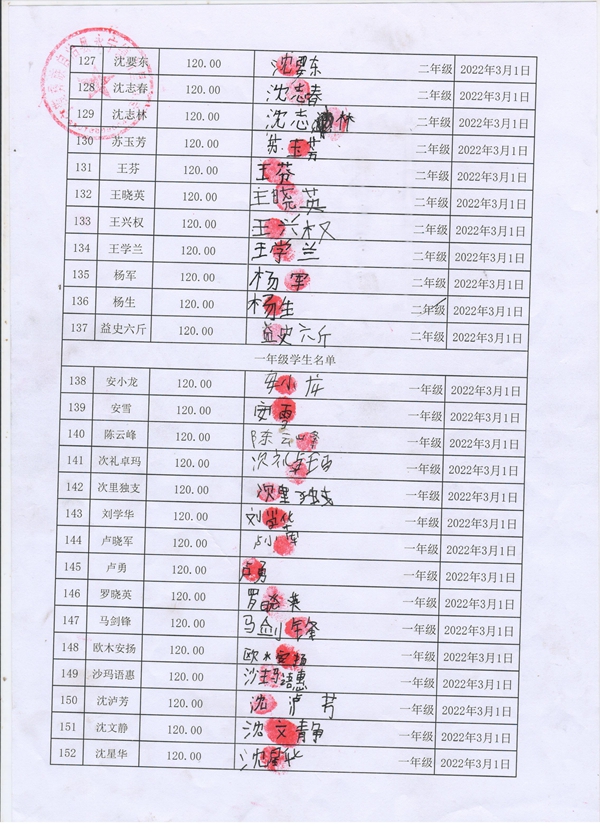 127 沈要东 120.00 沈要东 二年级 2022年3月1日
128 沈志春 120.00 沈志春 二年级 2022年3月1日
129 沈志林 120.00 沈志林 二年级 2022年3月1日
130 苏玉芳 120.00 苏玉芳 二年级 2022年3月1日
131 王芬 120.00 王芬 二年级 2022年3月1日
132 王晓英 120.00 王晓英 二年级 2022年3月1日
133 王兴权 120.00 王兴权 二年级 2022年3月1日
134 王学兰 120.00 王学兰 二年级 2022年3月1日
135 杨军 120.00 杨军 二年级 2022年3月1日
136 杨生 120.00 杨生 二年级 2022年3月1日
137 益史六斤 120.00 益史六斤 二年级 2022年3月1日
一年级学生名单
138 安小龙 120.00 安小龙 一年级 2022年3月1日
139 安雪 120.00 安雪 一年级 2022年3月1日
140 陈云峰 120.00 陈云峰 一年级 2022年3月1日
141 次礼卓玛 120.00 次礼卓玛 一年级 2022年3月1日
142 次里独支 120.00 次里独支 一年级 2022年3月1日
143 刘学华 120.00 刘学华 一年级 2022年3月1日
144 卢晓军 120.00 卢小军 一年级 2022年3月1日
145 卢勇 120.00 卢勇 一年级 2022年3月1日
146 罗晓英 120.00 罗晓英 一年级 2022年3月1日
147 马剑锋 120.00 马剑锋 一年级 2022年3月1日
148 欧木安扬 120.00 欧木安 一年级 2022年3月1日
149 沙玛语惠 120.00 沙玛语惠 一年级 2022年3月1日
150 沈泸芳 120.00 沈泸芳 一年级 2022年3月1日
151 沈文静 120.00 沈文静 一年级 2022年3月1日
152 沈星华 120.00 沈星华 一年级 2022年3月1日